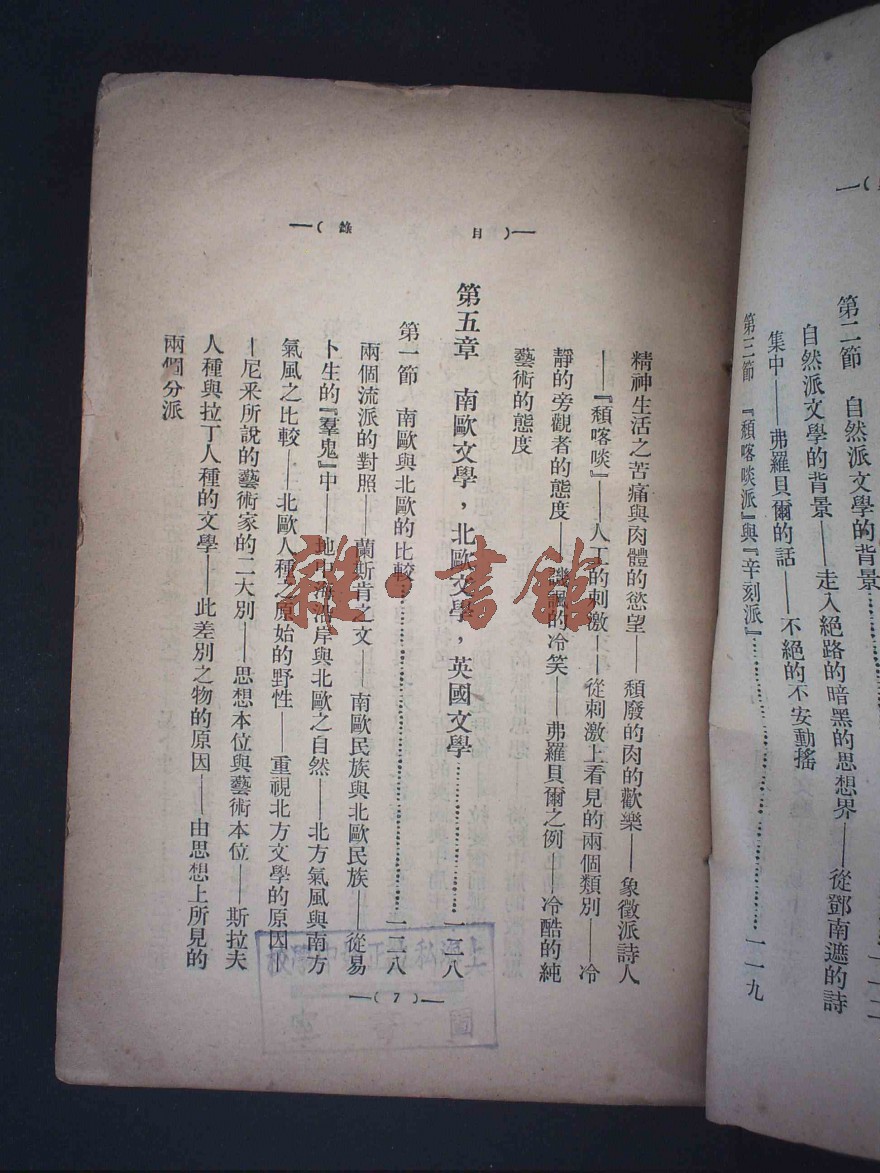 第二節　自然派文學的背景……………
自然派文學的背景——走入絕路的暗黑的思想界——從鄧南遮的詩
集中——弗羅貝爾的話——不絕的不安動搖
第三節　『頹喀啖派』與『辛刻派』……………一一九
—（目　錄）—
精神生活之苦痛與肉體的慾望——頹廢的肉的歡樂——象徵派詩人
——『頹喀啖』——人工的刺激——從刺激上看見的兩個類別——冷
靜的旁觀者的態度——譏諷的冷笑——弗羅貝爾之例——冷酷的純
藝術的態度
第五章　南歐文學，北歐文學，英國文學……………一二八
第一節　南歐與北歐的比較……………一二八
兩個流派的對照——蘭斯肯之文——南歐民族與北歐民族——從易
卜生的『羣鬼』中——地中海沿岸與北歐之自然——北方氣風與南方
氣風之比較——北歐人種之原始的野性——重視北方文學的原因—
—尼采所說的藝術家的二大別——思想本位與藝術本位——斯拉夫
人種與拉丁人種的文學——此差別之物的原因——由思想上所見的
兩個分派
—（7）—
雜·書館